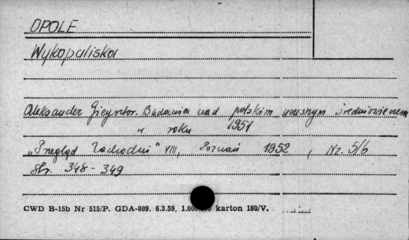 OPOLE
Wykopaliska
Aleksander Gieysztor. Badania nad polskim wczesnym średniowieczem
w roku 1951
„Przegląd Zachodni" VIII, Poznań 1952, Nr. 5/6
Str. 348-349
CWD B-15b Nr 515/P. GDA-809. 6.3.59, karton 180/V.